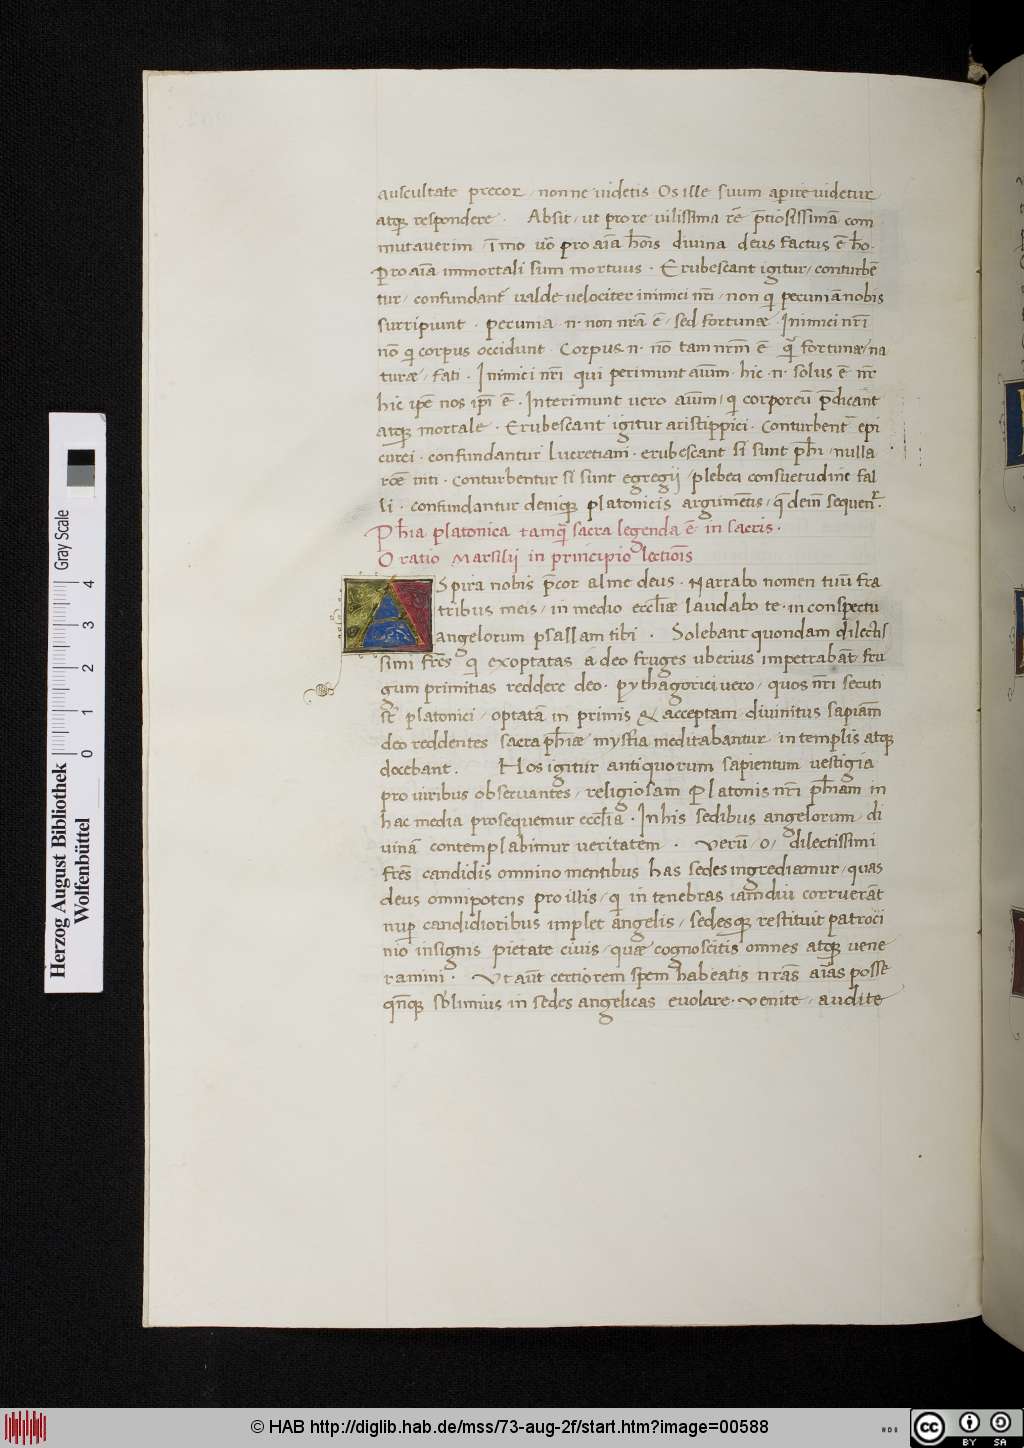 auscultate precor / nonne uidetis · Os ille suum aperire videtur
atqȝ respondere · Absit / ut pro re uilissima rē p̄tiosissimā com
mutauerim / īmo uō pro aīa hoīs divina deus factus ē hō ·
Pro aīa immortali sum mortuus · Erubescant igitur / conturbē
tur / confundant̄ ualde uelociter inimici nr̄i / non qi pecuniā nobis
surripiunt · pecunia · n · non nr̄a ē / sed fortunæ · Inimici nr̄i
nō qi corpus occidunt · Corpus · n · nō tam nr̄m ē qȝ fortunæ / na
turæ / fati · Inimici nr̄i qui perimunt aīum · hic · n · solus ē nr̄
hic ip̄e nos ip̄i ē · Interimunt uero aīum / qi corporeū p̄dicant
atqȝ mortale · Erubescant igitur aristippici · Conturbent̄ epi
curei · confundantur lucretiani · erubescant si sunt ph̄i / nulla
rōe inti · Conturbentur si sunt egregij / plebea consuetudine fal
li · confundantur deniqȝ platonicis argumētis / q̄ dein̄ sequent̄ ·
Ph̄ia platonica tamqȝ sacra legenda ē in sacris ·
Oratio Marsilij in principio lectiōis
ASpira nobis p̄cor alme deus · Narrabo nomen tuū fra
tribus meis / in medio eccl̄iæ laudabo te · in conspectu
angelorum psallam tibi · Solebant quondam dilectis
simi fr̄es qi exoptatas a deo fruges uberius impetrabāt fru
gum primitias reddere deo · pythagorici uero / quos nr̄i secuti
st̄ platonici / optatā in primis & acceptam diuinitus sapiam̄
deo reddentes sacra ph̄iæ myst̄ia meditabantur in templis atqȝ
docebant · Hos igitur antiquorum sapientum uestigia
pro uiribus obseruantes / religiosam Platonis nr̄i ph̄iam in
hac media prosequemur eccl̄ia · In his sedibus angelorum di
uinā contemplabimur ueritatem · Verū o / dilectissimi
fr̄es candidis omnino mentibus has sedes ingrediamur / quas
deus omnipotens pro illis / qi in tenebras iamdiu corruerāt
nup̄ candidioribus implet angelis / sedesqȝ restituit patroci
nio insignis pietate ciuis / quæ cognoscitis omnes atqȝ uene
ramini · Vt aūt certiorem spem habeatis nr̄as aīas posse
qn̄qȝ sb̄limius in sedes angelicas euolare · Venite / audite
Herzog August Bibliothek
Wolfenbüttel
Gray Scale
0 1 2 3 4
© HAB http://diglib.hab.de/mss/73-aug-2f/start.htm?image=00588
cc BY SA